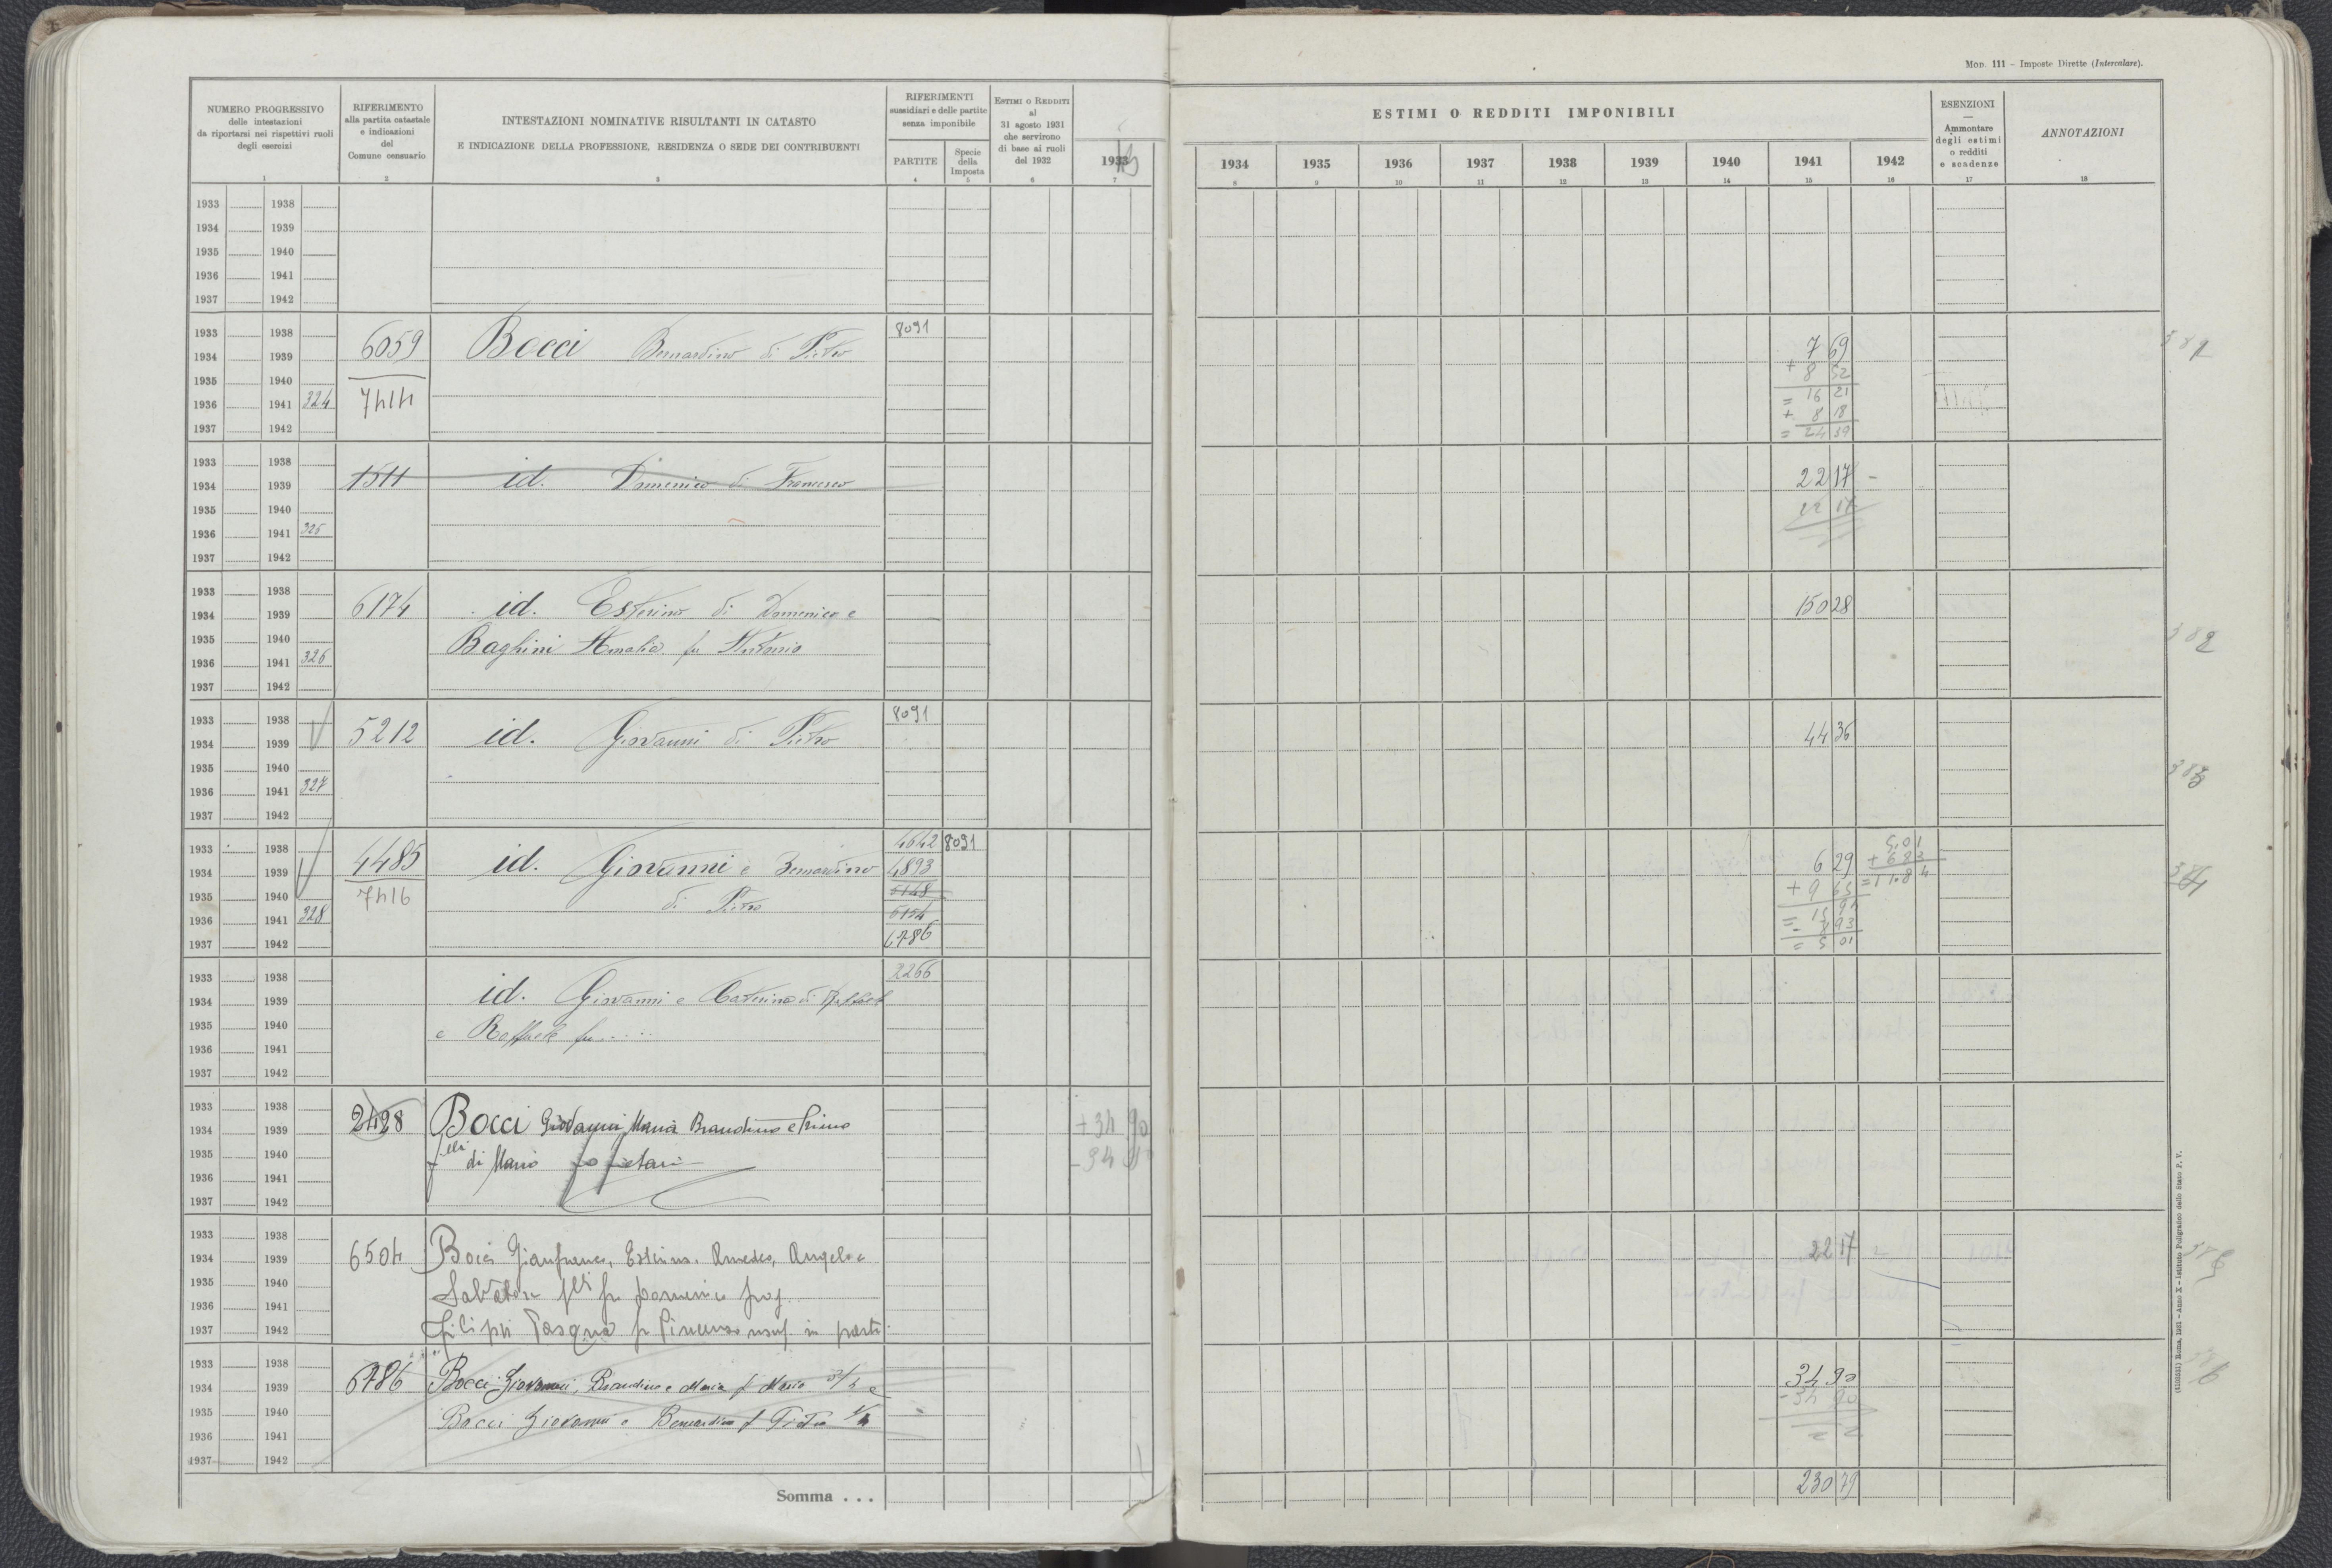 MOD. 111 – Imposte Dirette (Intercalare).
NUMERO PROGRESSIVO
delle intestazioni
da riportarsi nei rispettivi ruoli
degli esercizi
1
RIFERIMENTO
alla partita catastale
e indicazioni
del
Comune censuario
2
INTESTAZIONI NOMINATIVE RISULTANTI IN CATASTO
E INDICAZIONE DELLA PROFESSIONE, RESIDENZA O SEDE DEI CONTRIBUENTI
3
RIFERIMENTI
sussidiari e delle partite
senza imponibile
PARTITE
4
Specie
della
Imposta
5
ESTIMI O REDDITI
al
31 agosto 1931
che servirono
di base ai ruoli
del 1932
6
1933
7
ESTIMI O REDDITI IMPONIBILI
1934 1935 1936 1937 1938 1939 1940 1941 1942
8 9 10 11 12 13 14 15 16
ESENZIONI
—
Ammontare
degli estimi
o redditi
e scadenze
17
ANNOTAZIONI
18
1933 1938
1934 1939
1935 1940
1936 1941
1937 1942
1933 1938 8091
1934 1939 6059 Bocci Bernardino di Pietro 7 69
1935 1940 + 8 52
1936 1941 324 7414 = 16 21
+ 8 18
1937 1942 = 24 39
1933 1938
1934 1939 1511 id. Domenico di Francesco 22 17 -
1935 1940 22 17
1936 1941 325
1937 1942
1933 1938
1934 1939 6174 id. Esterino di Domenico e 150 28
1935 1940 Baghini Amalia fu Antonio 382
1936 1941 326
1937 1942
1933 1938 8091
1934 1939 5212 id. Giovanni di Pietro 44 36
1935 1940 383
1936 1941 327
1937 1942
1933 1938 4642 8091 5,01
1934 1939 4485 id. Giovanni e Bernardino 4893 6 29 + 683
1935 1940 7416 5148 + 9 65 = 11.84
1936 1941 328 di Pietro 5154 = 15 94
- 8 93
1937 1942 6786 = 5 01
1933 1938 2266
1934 1939 id. Giovanni e Caterina di Raffaele
1935 1940 e Raffaele fu .....
1936 1941
1937 1942
1933 1938
1934 1939 2428 Bocci Giovanni, Maria Brandino e Primo + 34 90
1935 1940 flli di Mario proprietari - 34 90
1936 1941
1937 1942
1933 1938
1934 1939 6504 Bocci Gianfranco, Esterino, Amedeo, Angelo e 22 17
1935 1940 Salvatore flli fu Domenico prop.
1936 1941
1937 1942 Filippi Pasqua fu Vincenzo usuf. in parte
1933 1938
1934 1939 6786 Bocci Giovanni, Brandino e Maria f Mario 3/4 e 34 90
1935 1940 Bocci Giovanni e Bernardino f Pietro 1/4 - 34 90
1936 1941
1937 1942
Somma . . . 230 79
Roma, 1931 – Anno X – Istituto Poligrafico dello Stato P. V.